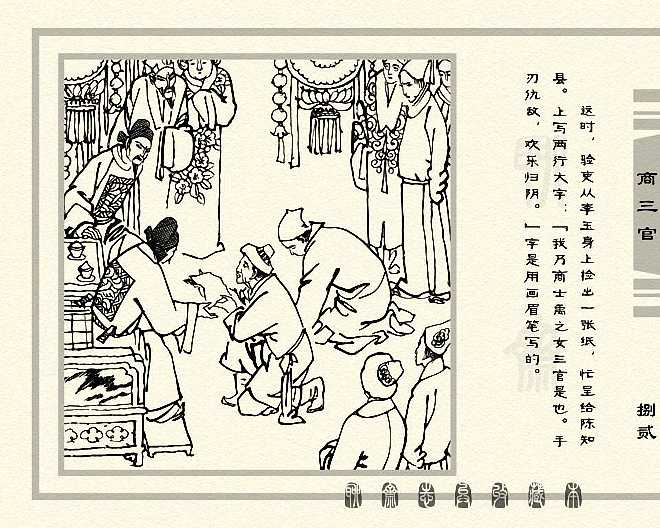 这时，验吏从李玉身上捡出一张纸，忙呈给陈知
县。上写两行大字：「我乃商士禹之女三官是也。手
刃仇敌，欢乐归阴。」字是用画眉笔写的。
商三官
捌贰